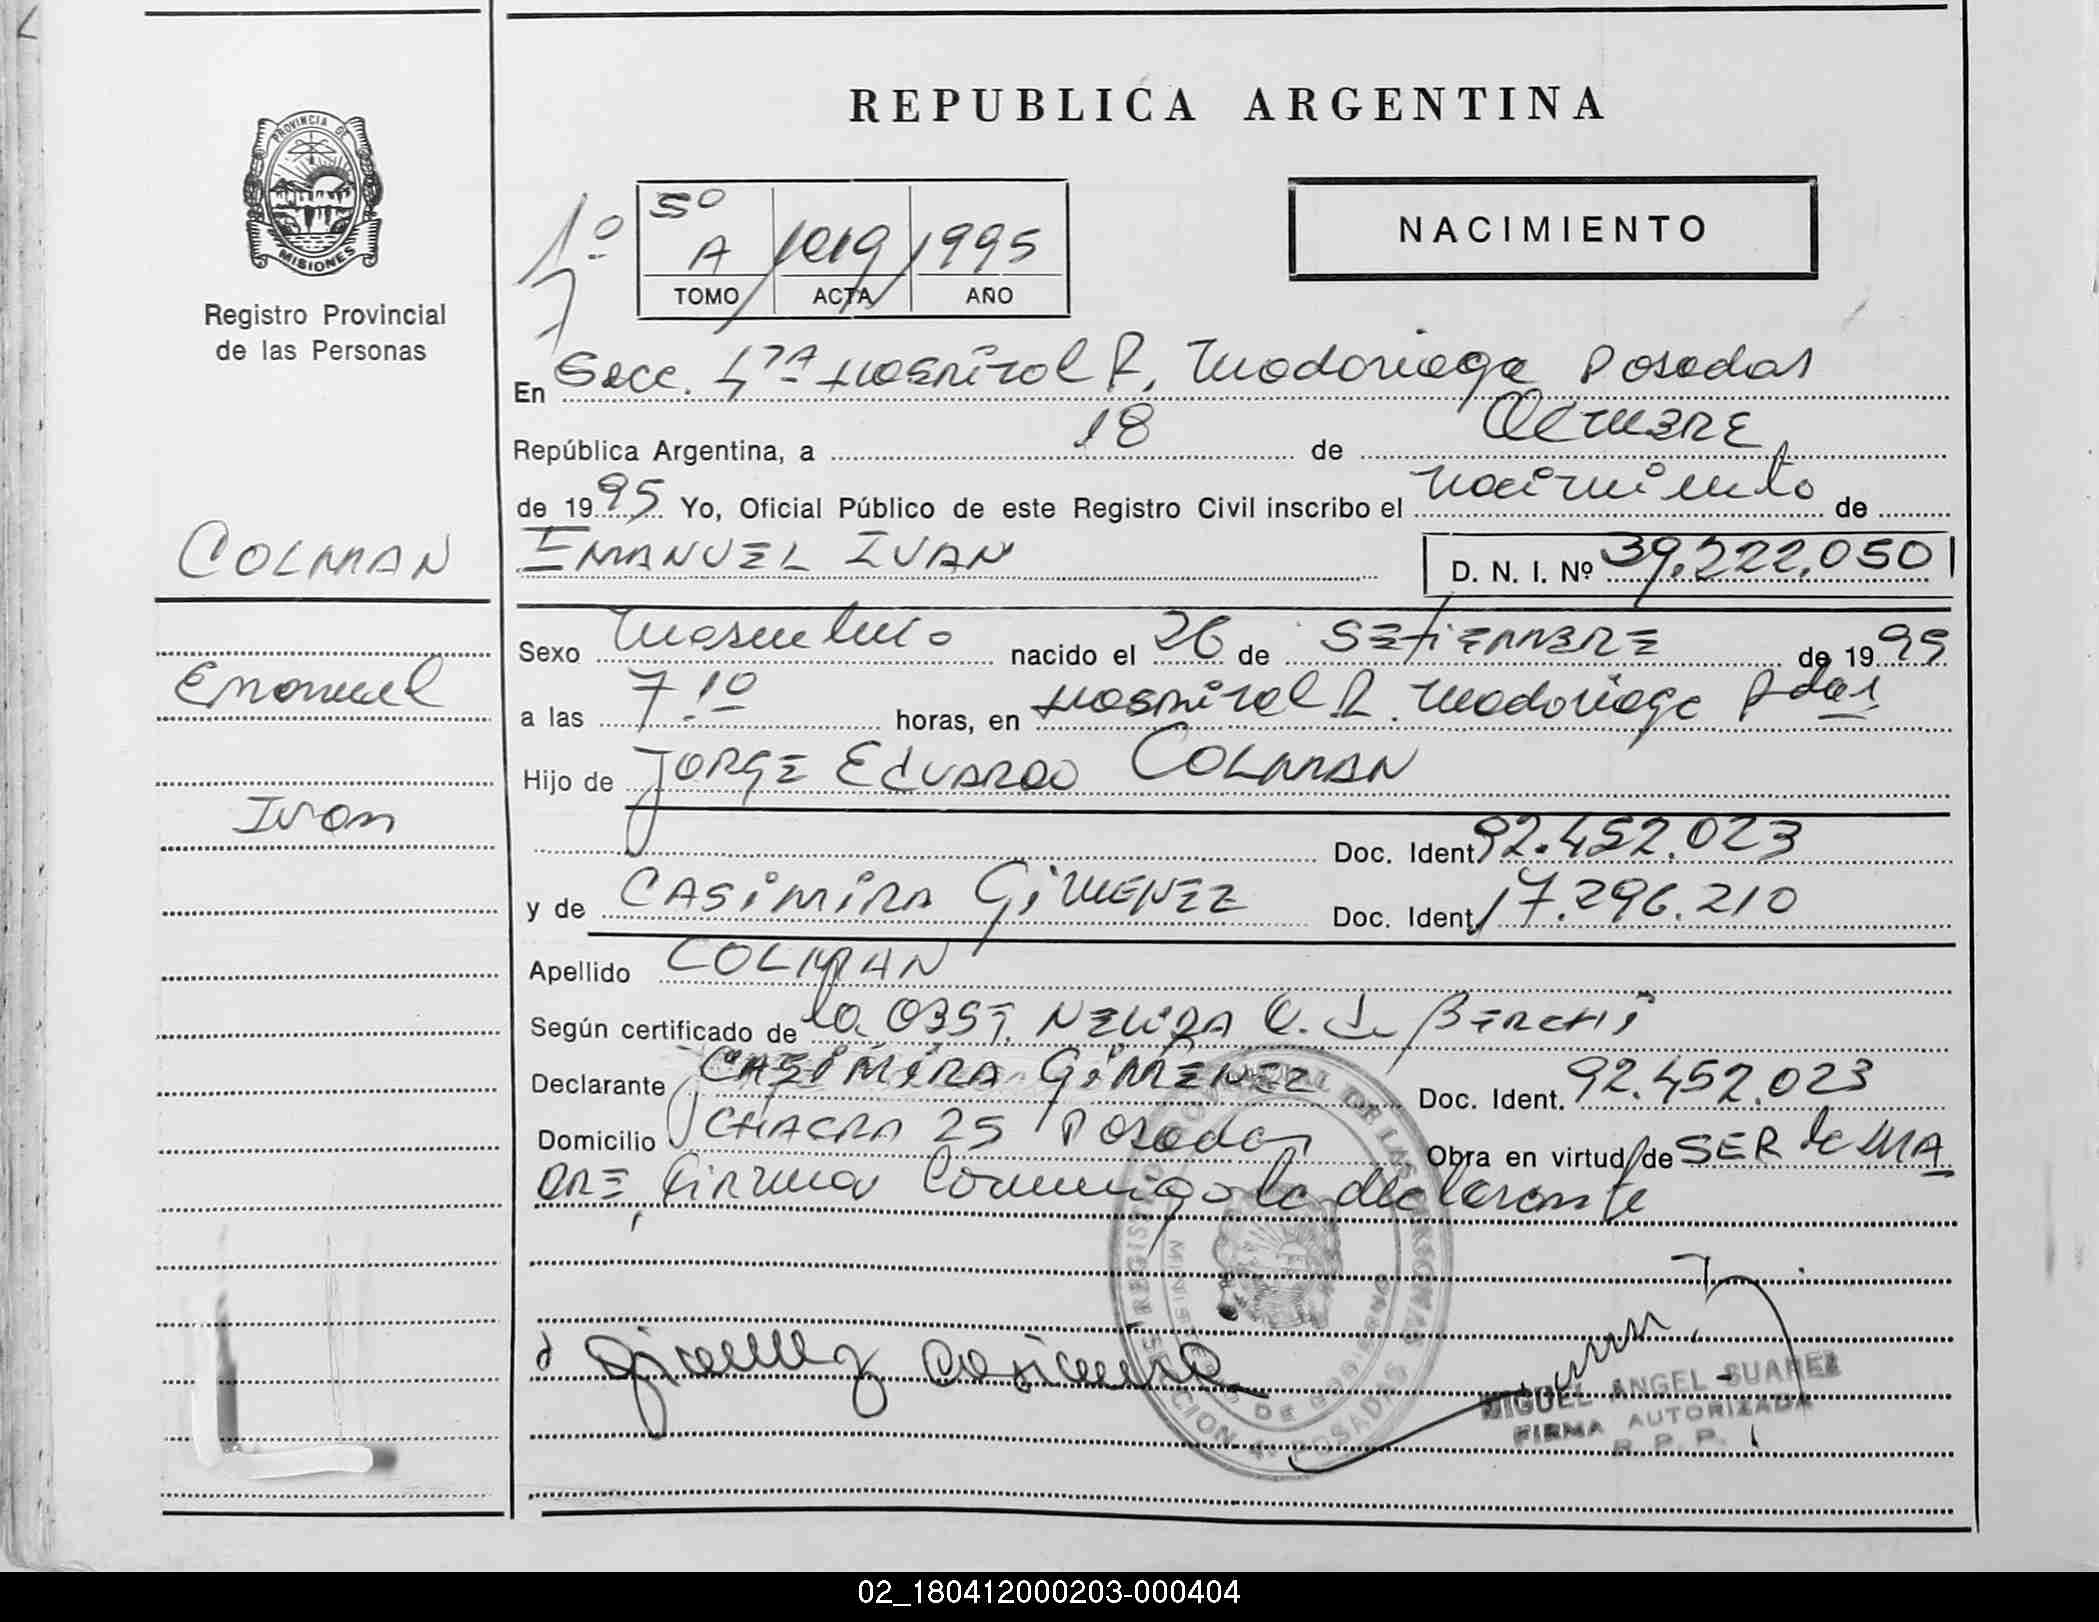 REPUBLICA ARGENTINA
PROVINCIA DE
MISIONES
Registro Provincial
de las Personas
1º
5º
A 1019 1995
TOMO ACTA AÑO
NACIMIENTO
En Secc. 4TA Hospital R. Madariaga Posadas
República Argentina, a 18 de OCTUBRE
de 1995 Yo, Oficial Público de este Registro Civil inscribo el nacimiento de
COLMAN
EMANUEL IVAN D. N. I. Nº 39.222.050
Sexo Masculino nacido el 26 de SETIEMBRE de 1995
Emanuel
a las 7.10 horas, en Hospital R. Madariaga Pdas
Hijo de JORGE EDUARDO COLMAN
Ivan
Doc. Ident. 92.452.023
y de CASIMIRA GIMENEZ Doc. Ident. 17.296.210
Apellido COLMAN
Según certificado de la OBST. NELIDA de BERCHI
Declarante CASIMIRA GIMENEZ Doc. Ident. 92.452.023
Domicilio CHACRA 25 Posadas Obra en virtud de SER la MA
DRE, firma conmigo la declarante
REGISTRO PROVINCIAL DE LAS PERSONAS
MINISTERIO DE GOBIERNO
SECCION 4ª POSADAS
Gimenez Casimira
MIGUEL ANGEL SUAREZ
FIRMA AUTORIZADA
R. P. P.
02_180412000203-000404